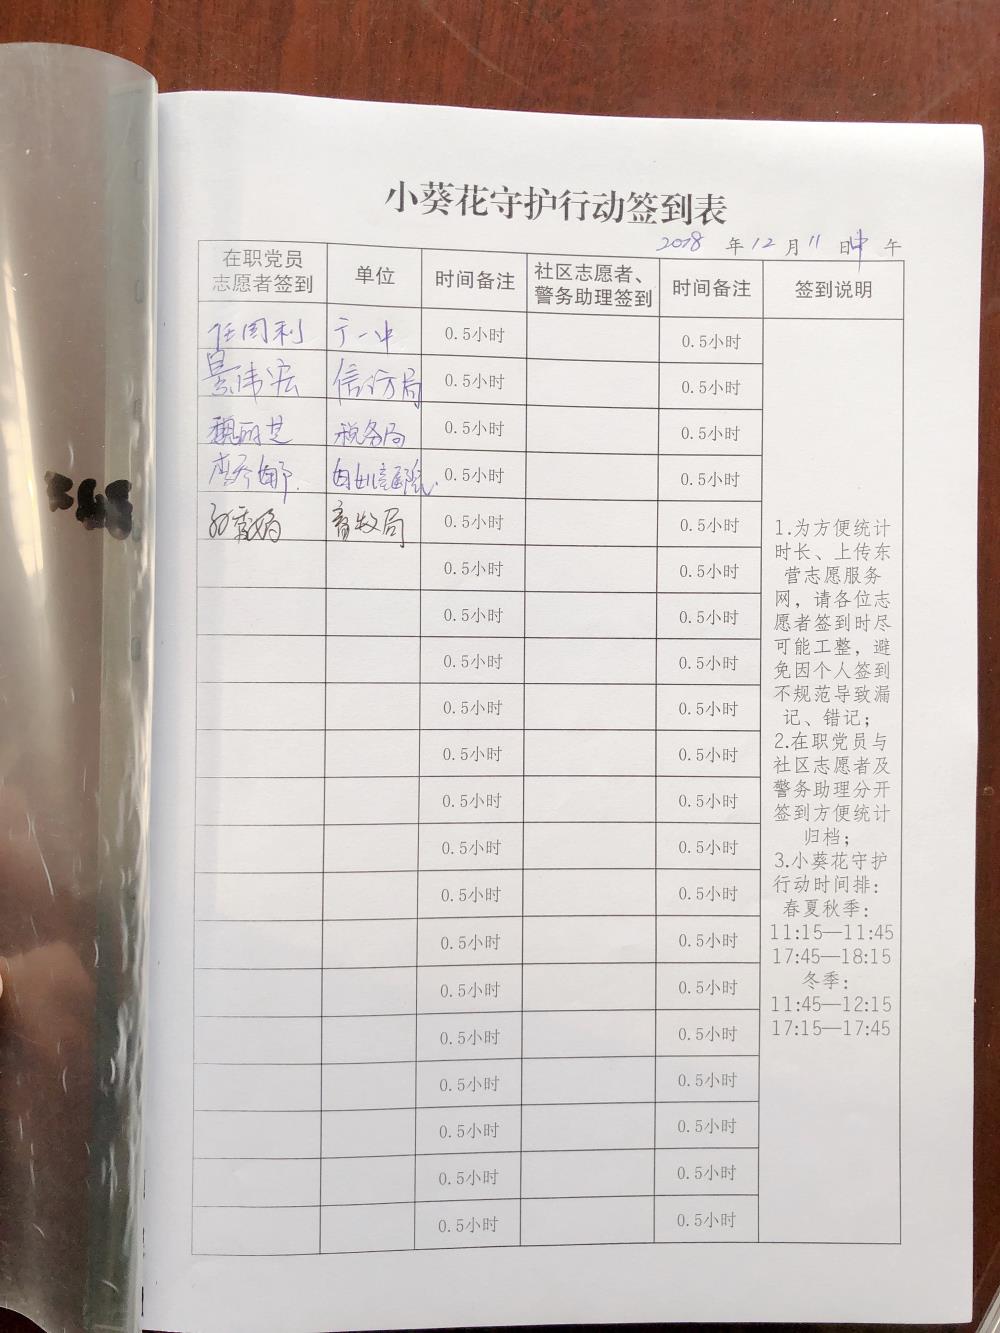 小葵花守护行动签到表
2018 年 12 月 11 日 中 午
在职党员
志愿者签到
单位
时间备注
社区志愿者、
警务助理签到
时间备注
签到说明
任周利 广一中 0.5小时 0.5小时
景伟宏 信访局 0.5小时 0.5小时
魏丽芝 税务局 0.5小时 0.5小时
0.5小时 0.5小时
畜牧局 0.5小时 0.5小时
0.5小时 0.5小时
0.5小时 0.5小时
0.5小时 0.5小时
0.5小时 0.5小时
0.5小时 0.5小时
0.5小时 0.5小时
0.5小时 0.5小时
0.5小时 0.5小时
0.5小时 0.5小时
0.5小时 0.5小时
0.5小时 0.5小时
0.5小时 0.5小时
0.5小时 0.5小时
0.5小时 0.5小时
0.5小时 0.5小时
1.为方便统计
时长、上传东
营志愿服务
网，请各位志
愿者签到时尽
可能工整，避
免因个人签到
不规范导致漏
记、错记；
2.在职党员与
社区志愿者及
警务助理分开
签到方便统计
归档；
3.小葵花守护
行动时间排：
春夏秋季：
11:15—11:45
17:45—18:15
冬季：
11:45—12:15
17:15—17:45